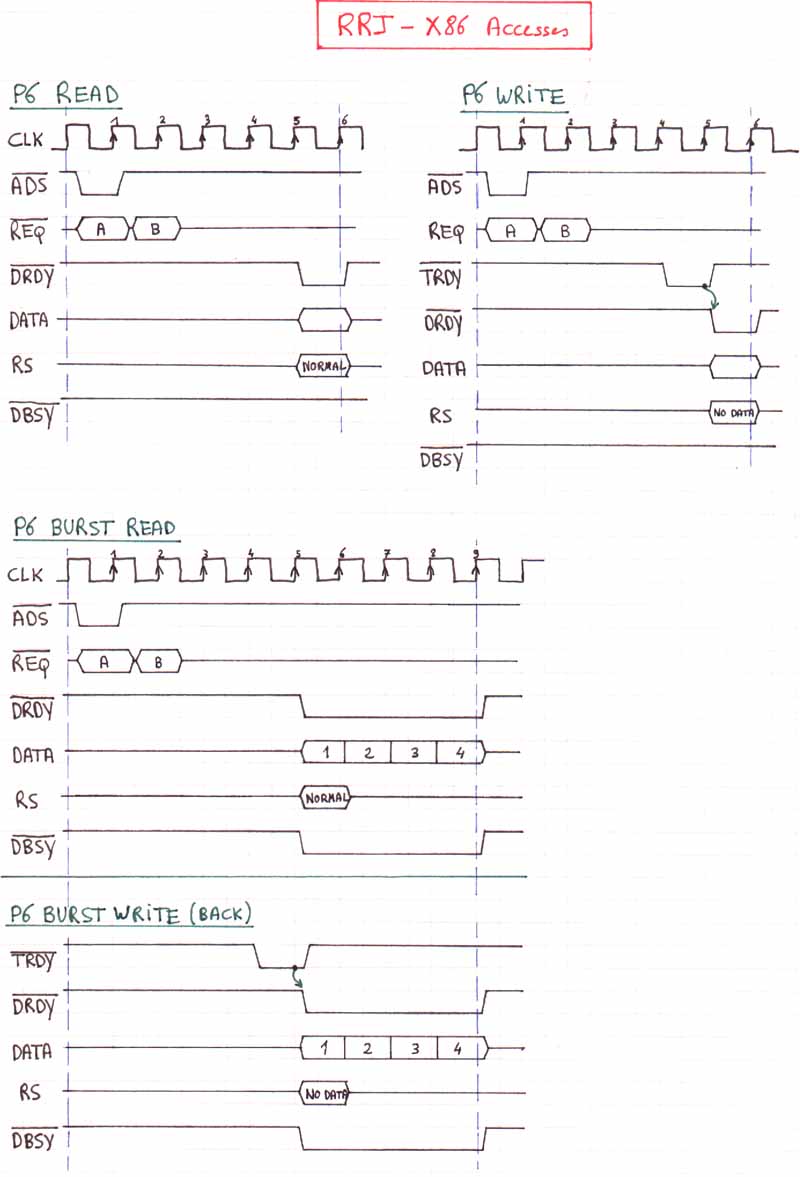 RRJ - X86 Accesses
P6 READ
CLK 1 2 3 4 5 6
ADS
REQ A B
DRDY
DATA
RS NORMAL
DBSY
P6 WRITE
1 2 3 4 5 6
ADS
REQ A B
TRDY
DRDY
DATA
RS NO DATA
DBSY
P6 BURST READ
CLK 1 2 3 4 5 6 7 8 9
ADS
REQ A B
DRDY
DATA 1 2 3 4
RS NORMAL
DBSY
P6 BURST WRITE (BACK)
TRDY
DRDY
DATA 1 2 3 4
RS NO DATA
DBSY